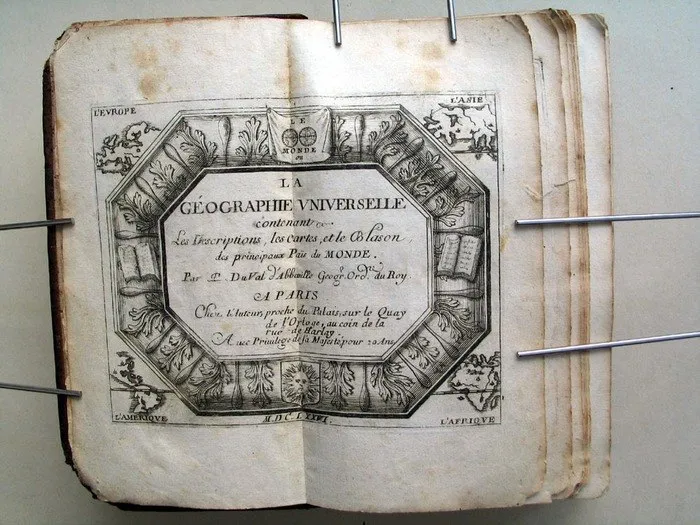 L'EVROPE
L'ASIE
LE
MONDE
ou
LA
GÉOGRAPHIE VNIVERSELLE
contenant
Les Descriptions, les cartes, et le Blason
des principaux Païs du MONDE.
Par P. DuVal d'Abbeville Geogr. Ordre. du Roy.
A PARIS
Chez l'Auteur, proche du Palais, sur le Quay
de l'Orloge, au coin de la
rue de Harlay.
Avec Privilege de sa Majesté pour 20 Ans
L'AMERIQVE
M.DC.LXXVI.
L'AFRIQVE